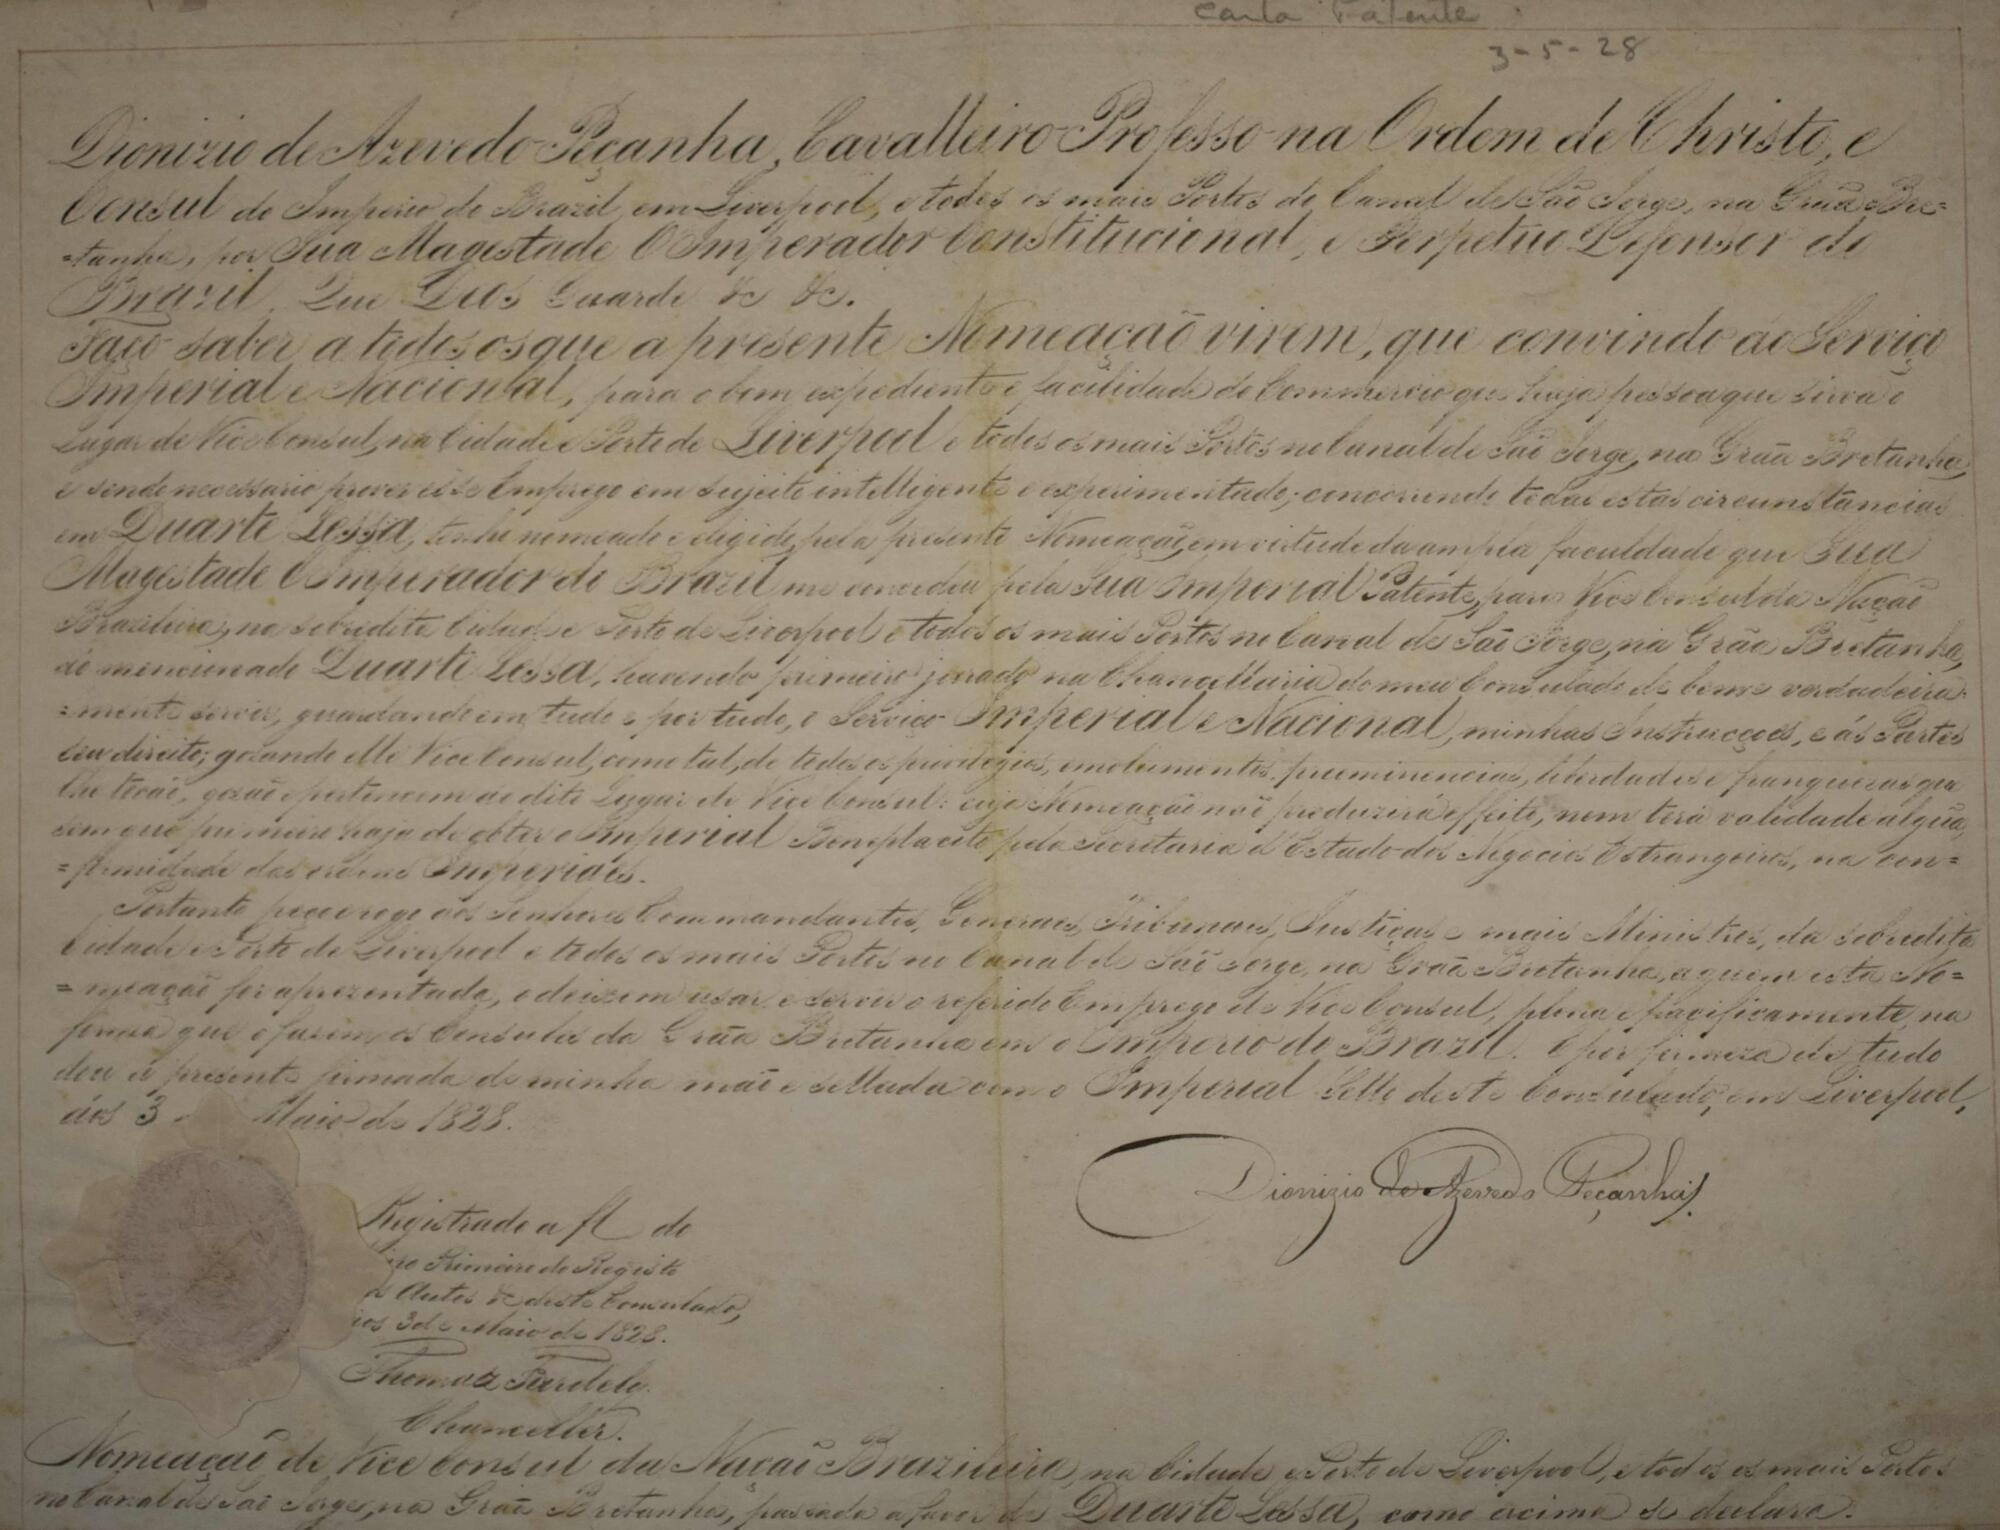 Carta Patente
3-5-28
Dionizio de Azevedo Peçanha, Cavalleiro Professo na Ordem de Christo, e
Consul do Imperio do Brazil, em Liverpool, e todos os mais Portos do Canal de São Jorge, na Grãa Bre=
=tanha, por Sua Magestade O Imperador Constitucional, e Perpetuo Defensor do
Brazil, Que Deos Guarde &c &c.
Faço saber a todos os que a presente Nomeação virem, que convindo ao Serviço
Imperial e Nacional, para o bom expediente e facilidade do Commercio que haja pessoa que sirva o
Lugar de Vice Consul, na Cidade e Porto de Liverpool e todos os mais Portos no Canal de São Jorge, na Grãa Bretanha,
e sendo necessario prover esse Emprego em sujeito intelligente e experimentado; concorrendo todas estas circunstancias
em Duarte Lessa, tenho nomeado e eligido, pela presente Nomeação, em virtude da ampla faculdade que Sua
Magestade O Imperador do Brazil me concedeu pela Sua Imperial Patente, para Vice Consul da Nação
Brazileira, na sobredita Cidade e Porto de Liverpool e todos os mais Portos no Canal de São Jorge, na Grãa Bretanha,
do mencionado Duarte Lessa, havendo primeiro jurado na Chancellaria do meu Consulado de bem e verdadeira=
=mente servir, guardando em tudo e por tudo, o Serviço Imperial e Nacional, minhas Instrucções, e ás Partes
seu direito; gozando elle Vice Consul, como tal, de todos os privilegios, emolumentos, preeminencias, liberdades e franquezas que
lhe tocão, gozão e pertencem ao dito Lugar de Vice Consul: cuja Nomeação não produzirá effeito, nem terá validade algũa,
sem que primeiro haja de obter o Imperial Beneplacito pela Secretaria d'Estado dos Negocios Estrangeiros, na con=
=formidade das ordens Imperiaes.
Portanto peço e rogo aos Senhores Commandantes, Generaes, Tribunaes, Justiças e mais Ministros, da sobredita
Cidade e Porto de Liverpool e todos os mais Portos no Canal de São Jorge, na Grãa Bretanha, a quem esta No=
=meação for aprezentada, o deixem usar e servir o referido Emprego de Vice Consul, plena e pacificamente, na
forma que o fazem os Consules da Grãa Bretanha em o Imperio do Brazil. E por firmeza de tudo
dou a presente firmada de minha mão e sellada com o Imperial Sello deste Consulado, em Liverpool,
áos 3 Maio de 1828.
Dionizio de Azevedo Peçanha
Registrado a fl do
Primeiro do Registo
Autos &c deste Consulado,
aos 3 de Maio de 1828.
Thomaz
Chanceller.
Nomeação de Vice Consul da Nação Brazileira, na Cidade e Porto de Liverpool, e todos os mais Portos
no Canal de São Jorge, na Grãa Bretanha, passada a favor de Duarte Lessa, como acima se declara.